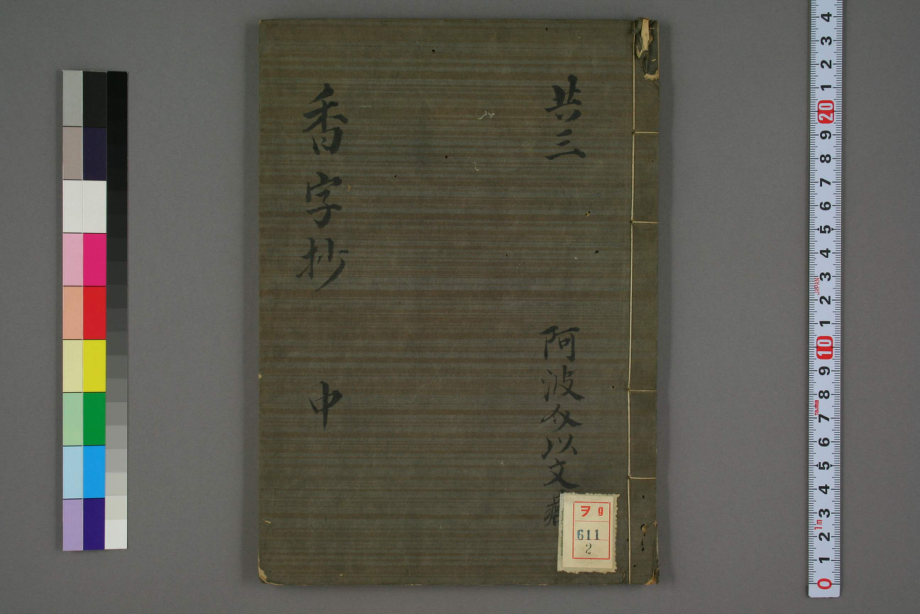 共三
阿波介以文
香字抄 中
ヲ 9
611
2
0 1 2 3 4 5 6 7 8 9 10 1 2 3 4 5 6 7 8 9 20 1 2 3 4